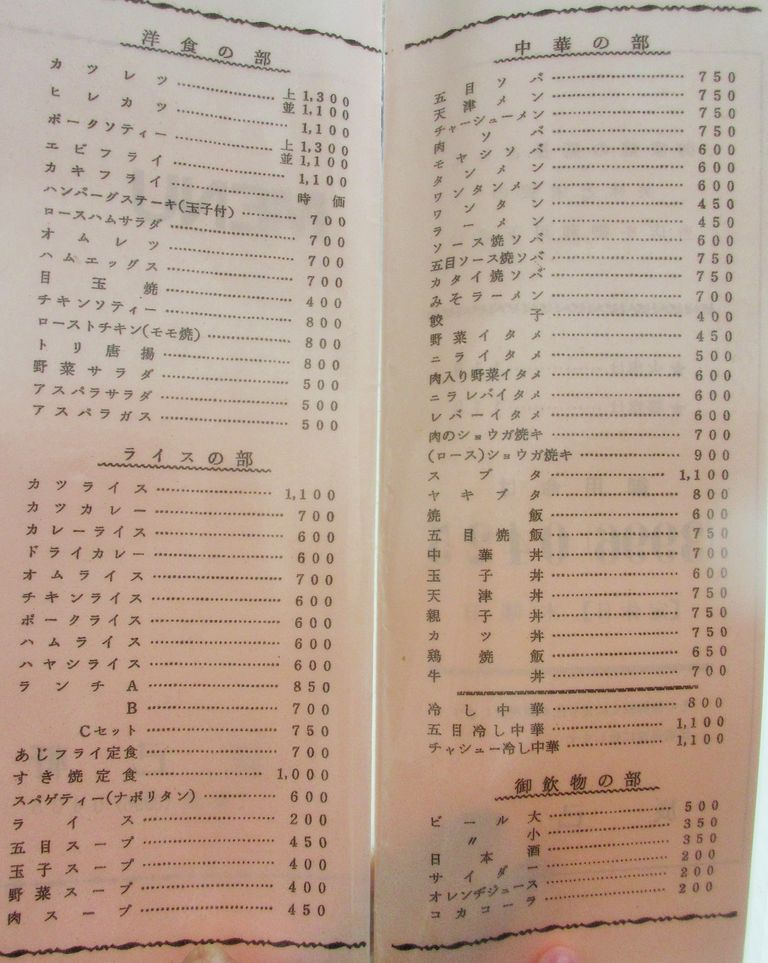 洋食の部
カツレツ 上1,300
並1,100
ヒレカツ 1,100
ポークソティー 上1,300
並1,100
エビフライ 1,100
カキフライ 時価
ハンバーグステーキ(玉子付) 700
ロースハムサラダ 700
オムレツ 700
ハムエッグス 700
目玉焼 400
チキンソティー 800
ローストチキン(モモ焼) 800
トリ唐揚 800
野菜サラダ 500
アスパラサラダ 500
アスパラガス 500
ライスの部
カツライス 1,100
カツカレー 700
カレーライス 600
ドライカレー 600
オムライス 700
チキンライス 600
ポークライス 600
ハムライス 600
ハヤシライス 600
ランチA 850
B 700
Cセット 750
あじフライ定食 700
すき焼定食 1,000
スパゲティー(ナポリタン) 600
ライス 200
五目スープ 450
玉子スープ 400
野菜スープ 400
肉スープ 450
中華の部
五目ソバ 750
天津メン 750
チャーシューメン 750
肉ソバ 750
モヤシソバ 600
タンメン 600
ワンタンメン 600
ワンタン 450
ラーメン 450
ソース焼ソバ 600
五目ソース焼ソバ 750
カタイ焼ソバ 750
みそラーメン 700
餃子 400
野菜イタメ 450
ニライタメ 500
肉入り野菜イタメ 600
ニラレバイタメ 600
レバーイタメ 600
肉のショウガ焼キ 700
(ロース)ショウガ焼キ 900
スブタ 1,100
ヤキブタ 800
焼飯 600
五目焼飯 750
中華丼 700
玉子丼 600
天津丼 750
親子丼 750
カツ丼 750
鶏焼飯 650
牛丼 700
冷し中華 800
五目冷し中華 1,100
チャシュー冷し中華 1,100
御飲物の部
ビール大 500
〃小 350
日本酒 350
サイダー 200
オレンヂジュース 200
コカコーラ 200